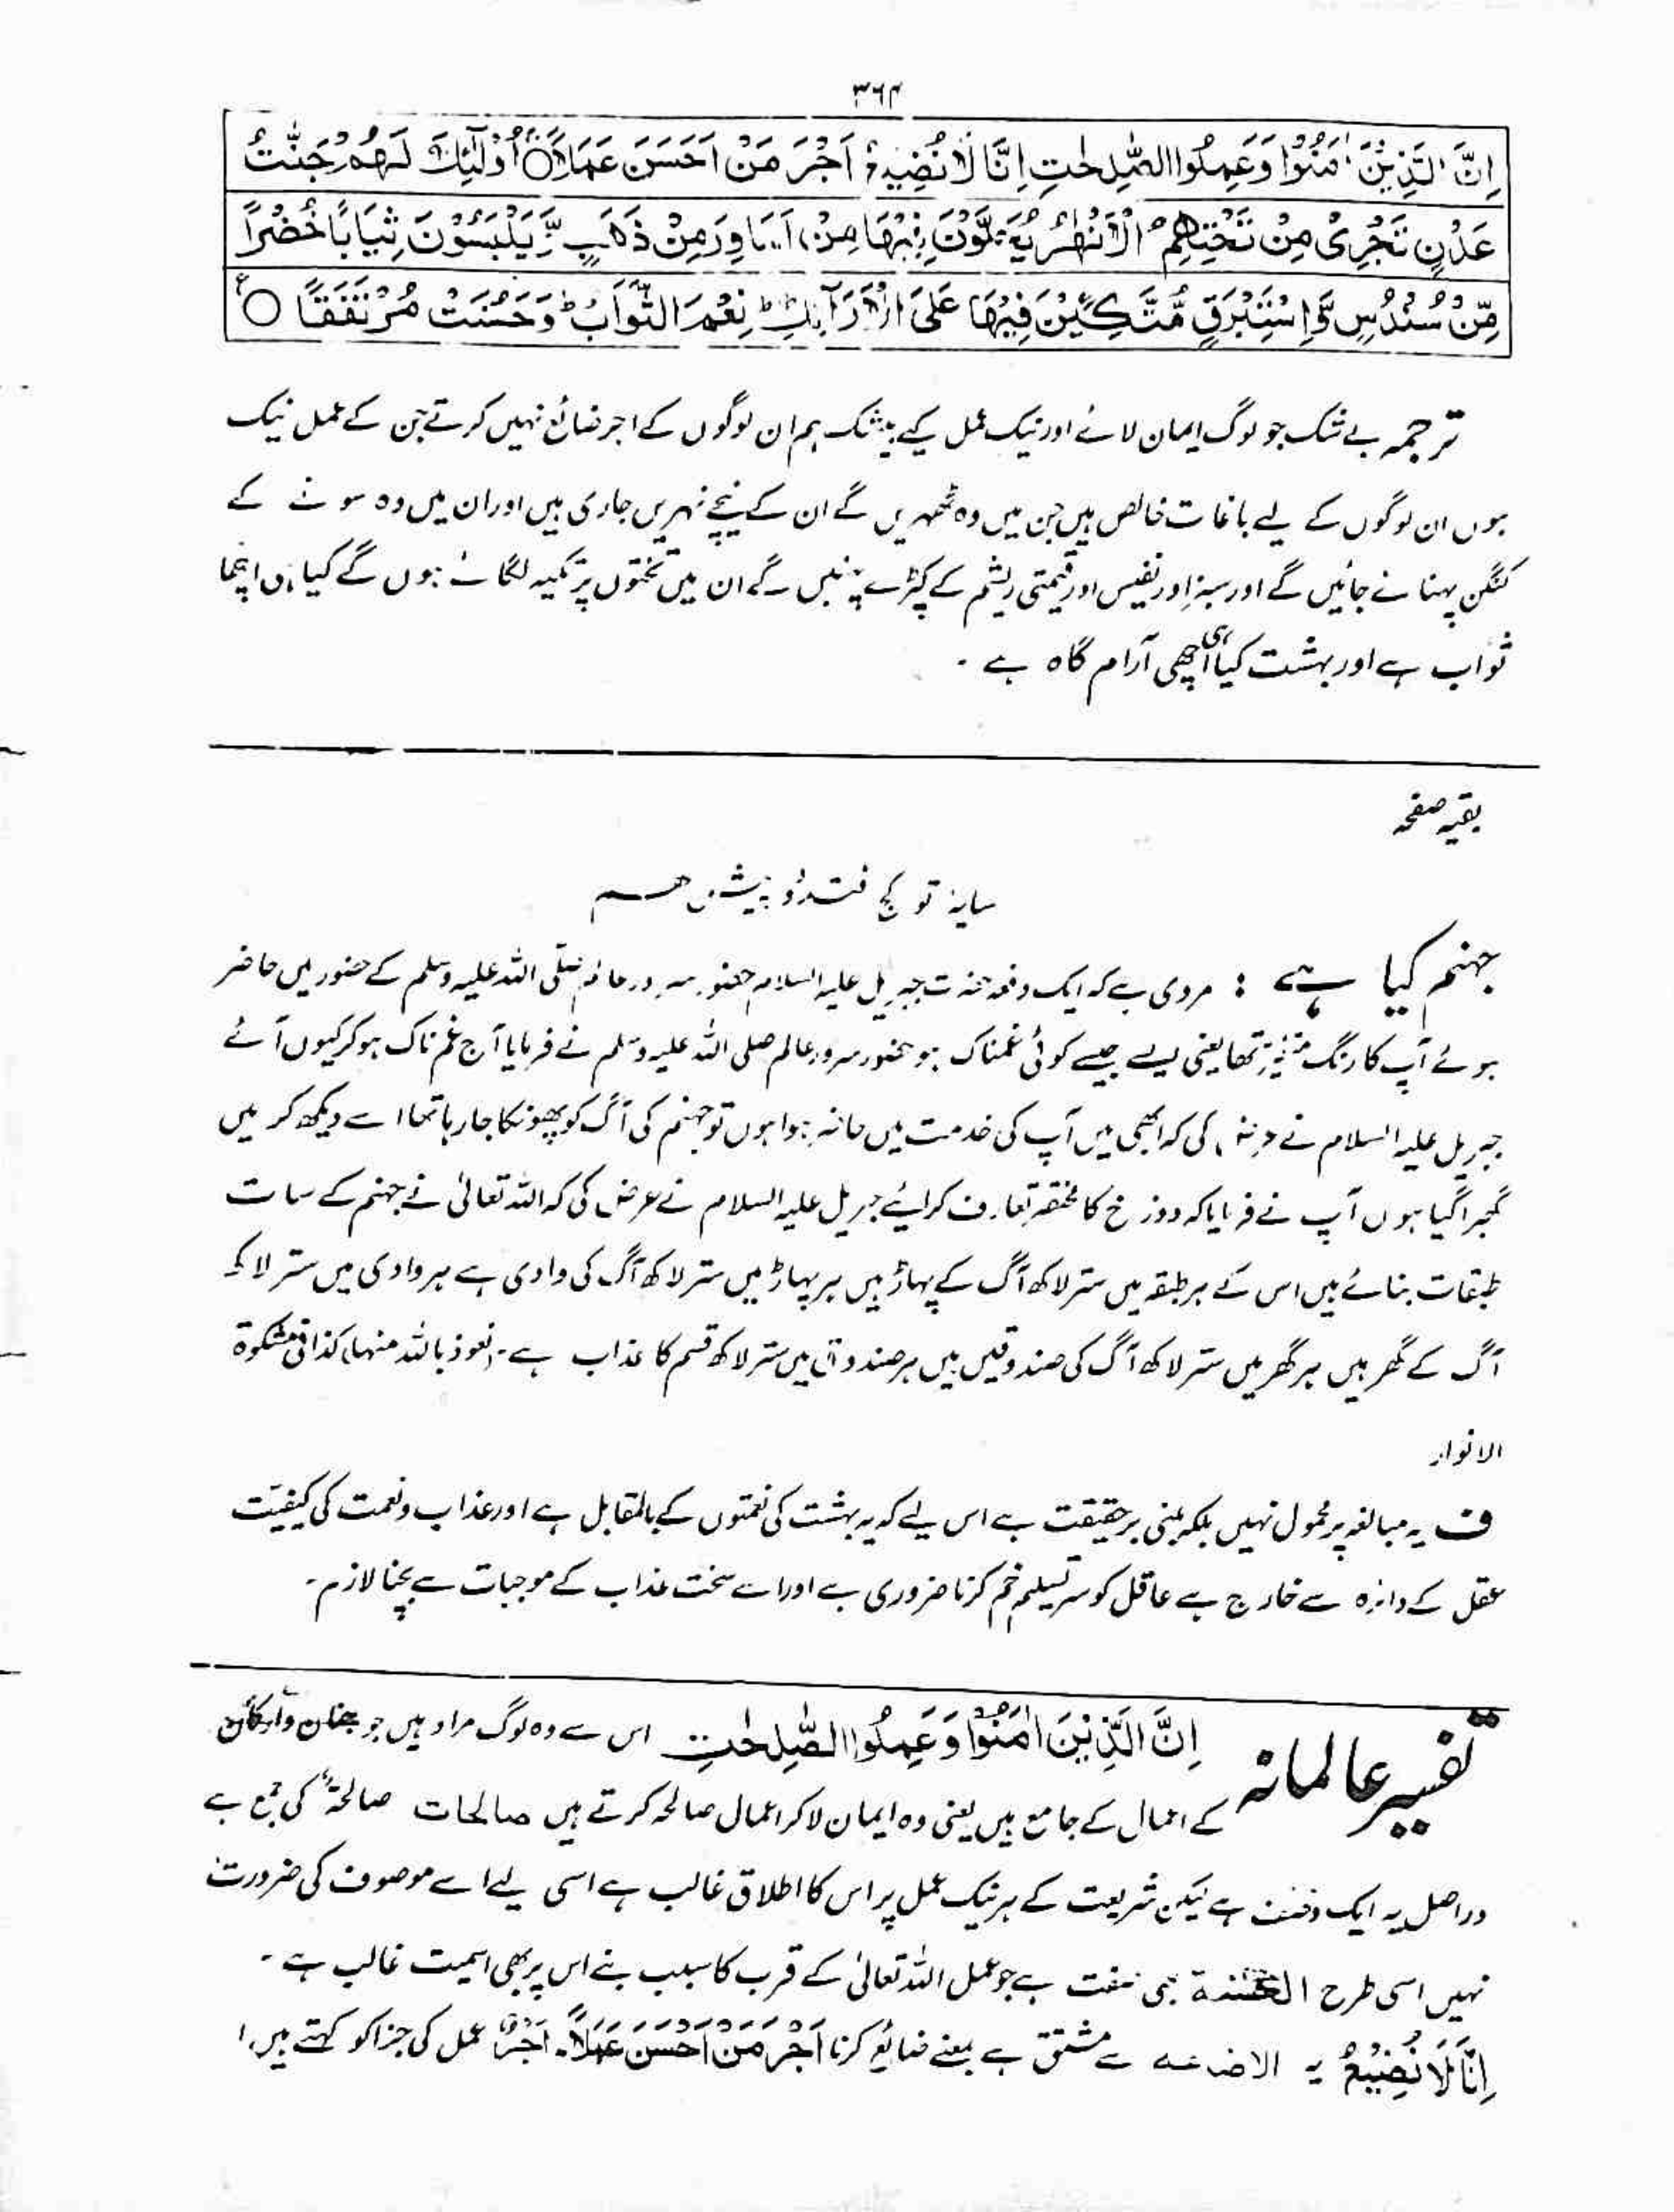 ۳۶۴
اِنَّ الَّذِیْنَ اٰمَنُوْا وَعَمِلُوا الصّٰلِحٰتِ اِنَّا لَا نُضِیْعُ اَجْرَ مَنْ اَحْسَنَ عَمَلًا ○ اُولٰٓئِكَ لَهُمْ جَنّٰتُ
عَدْنٍ تَجْرِیْ مِنْ تَحْتِهِمُ الْاَنْهٰرُ یُحَلَّوْنَ فِیْهَا مِنْ اَسَاوِرَ مِنْ ذَهَبٍ وَّیَلْبَسُوْنَ ثِیَابًا خُضْرًا
مِّنْ سُنْدُسٍ وَّاِسْتَبْرَقٍ مُّتَّكِـِٕیْنَ فِیْهَا عَلَی الْاَرَآىِٕكِ ؕ نِعْمَ الثَّوَابُ ؕ وَحَسُنَتْ مُرْتَفَقًا ○
ترجمہ بے شک جو لوگ ایمان لائے اور نیک عمل کیے بیشک ہم ان لوگوں کے اجر ضائع نہیں کرتے جن کے عمل نیک
ہوں ان لوگوں کے لیے باغات خالص ہیں جن میں وہ ٹھہریں گے ان کے نیچے نہریں جاری ہیں اور ان میں وہ سونے کے
کنگن پہنائے جائیں گے اور سبز اور نفیس اور قیمتی ریشم کے کپڑے پہنیں گے ان میں تختوں پر تکیہ لگائے ہوں گے کیا ہی اچھا
ثواب ہے اور بہشت کیا ہی اچھی آرام گاہ ہے ۔
بقیہ صفحہ
سایۂ تو کج فتد در پیش ہم
جہنم کیا ہے : مروی ہے کہ ایک دفعہ حضرت جبریل علیہ السلام حضور سرور عالم صلی اللہ علیہ وسلم کے حضور میں حاضر
ہوئے آپ کا رنگ متغیر تھا یعنی ایسے جیسے کوئی غمناک ہو حضور سرور عالم صلی اللہ علیہ وسلم نے فرمایا آج غم ناک ہو کر کیوں آئے
جبریل علیہ السلام نے عرض کی کہ ابھی میں آپ کی خدمت میں حاضر ہوا ہوں تو جہنم کی آگ کو پھونکا جا رہا تھا اسے دیکھ کر میں
گھبرا گیا ہوں آپ نے فرمایا کہ دوزخ کا مختصر تعارف کرائیے جبریل علیہ السلام نے عرض کی کہ اللہ تعالیٰ نے جہنم کے سات
طبقات بنائے ہیں اس کے ہر طبقہ میں ستر لاکھ آگ کے پہاڑ ہیں ہر پہاڑ میں ستر لاکھ آگ کی وادی ہے ہر وادی میں ستر لاکھ
آگ کے گھر ہیں ہر گھر میں ستر لاکھ آگ کی صندوقیں ہیں ہر صندوق میں ستر لاکھ قسم کا عذاب ہے ۔ نعوذ باللہ منہا، کذا فی مشکوۃ
الانوار
ف یہ مبالغہ پر محمول نہیں بلکہ مبنی بر حقیقت ہے اس لیے کہ یہ بہشت کی نعمتوں کے بالمقابل ہے اور عذاب و نعمت کی کیفیت
عقل کے دائرہ سے خارج ہے عاقل کو سر تسلیم خم کرنا ضروری ہے اور اسے سخت عذاب کے موجبات سے بچنا لازم ۔
تفسیر عالمانہ اِنَّ الَّذِیْنَ اٰمَنُوْا وَعَمِلُوا الصّٰلِحٰتِ اس سے وہ لوگ مراد ہیں جو جنان و ارکان
کے اعمال کے جامع ہیں یعنی وہ ایمان لا کر اعمال صالحہ کرتے ہیں صالحات صالحۃ کی جمع ہے
دراصل یہ ایک وصف ہے لیکن شریعت کے ہر نیک عمل پر اس کا اطلاق غالب ہے اسی لیے اسے موصوف کی ضرورت
نہیں اسی طرح الحسنة بھی صفت ہے جو عمل اللہ تعالیٰ کے قرب کا سبب بنے اس پر بھی اسمیت غالب ہے ۔
اِنَّا لَا نُضِیْعُ یہ الاضاعۃ سے مشتق ہے بمعنے ضائع کرنا اَجْرَ مَنْ اَحْسَنَ عَمَلًا ۔ اَجْرٌ عمل کی جزا کو کہتے ہیں